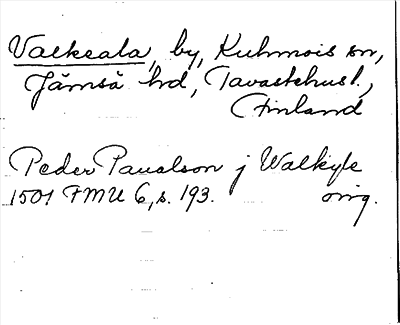 Valksala, by, Kuhmois sn,
Jämsä hd, Tavastehusl.,
Finland
Peder Paualson j Walkyle
1501 FMU 6, s. 193. orig.